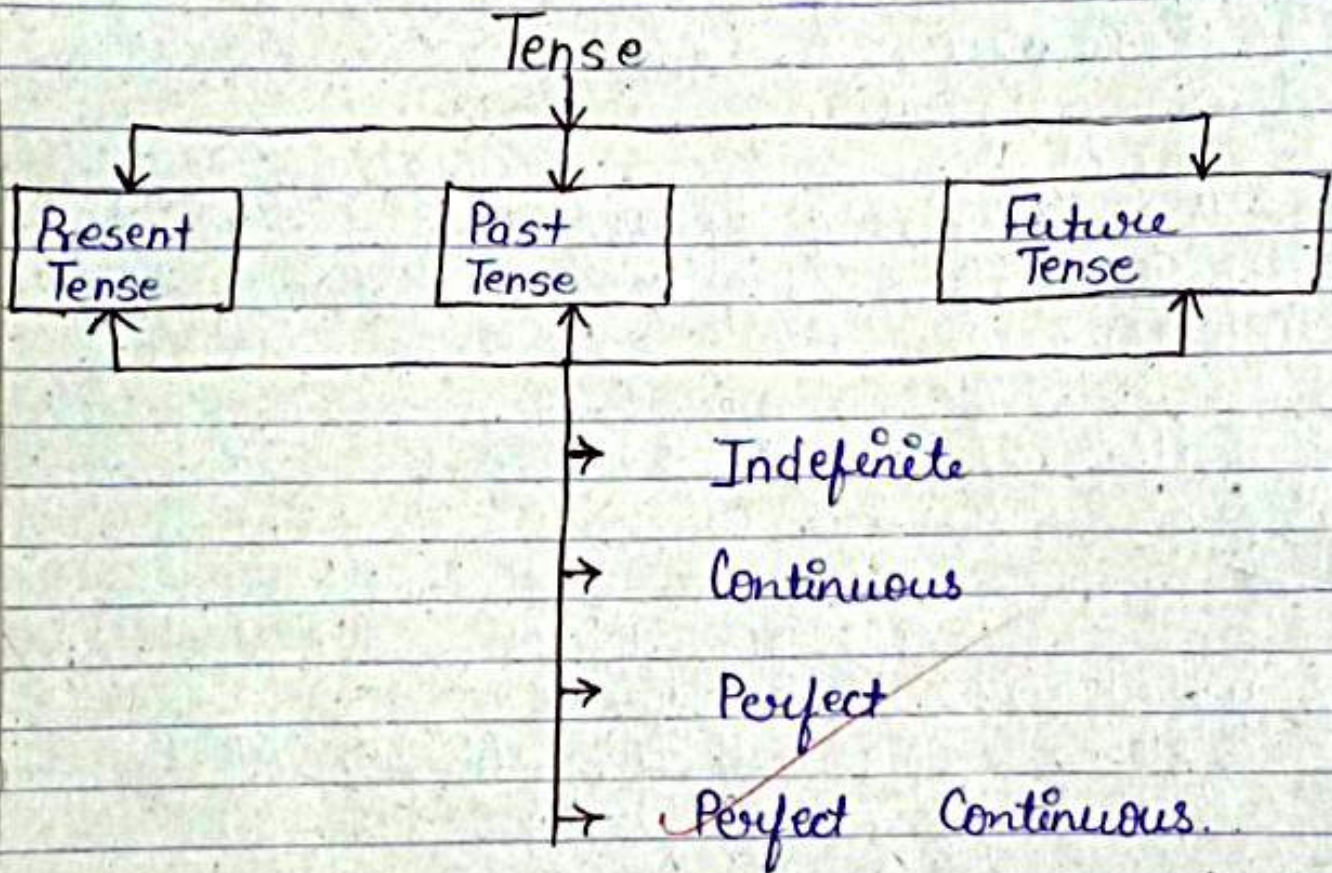 Tense
Present
Tense
Past
Tense
Future
Tense
Indefinite
Continuous
Perfect
Perfect Continuous.